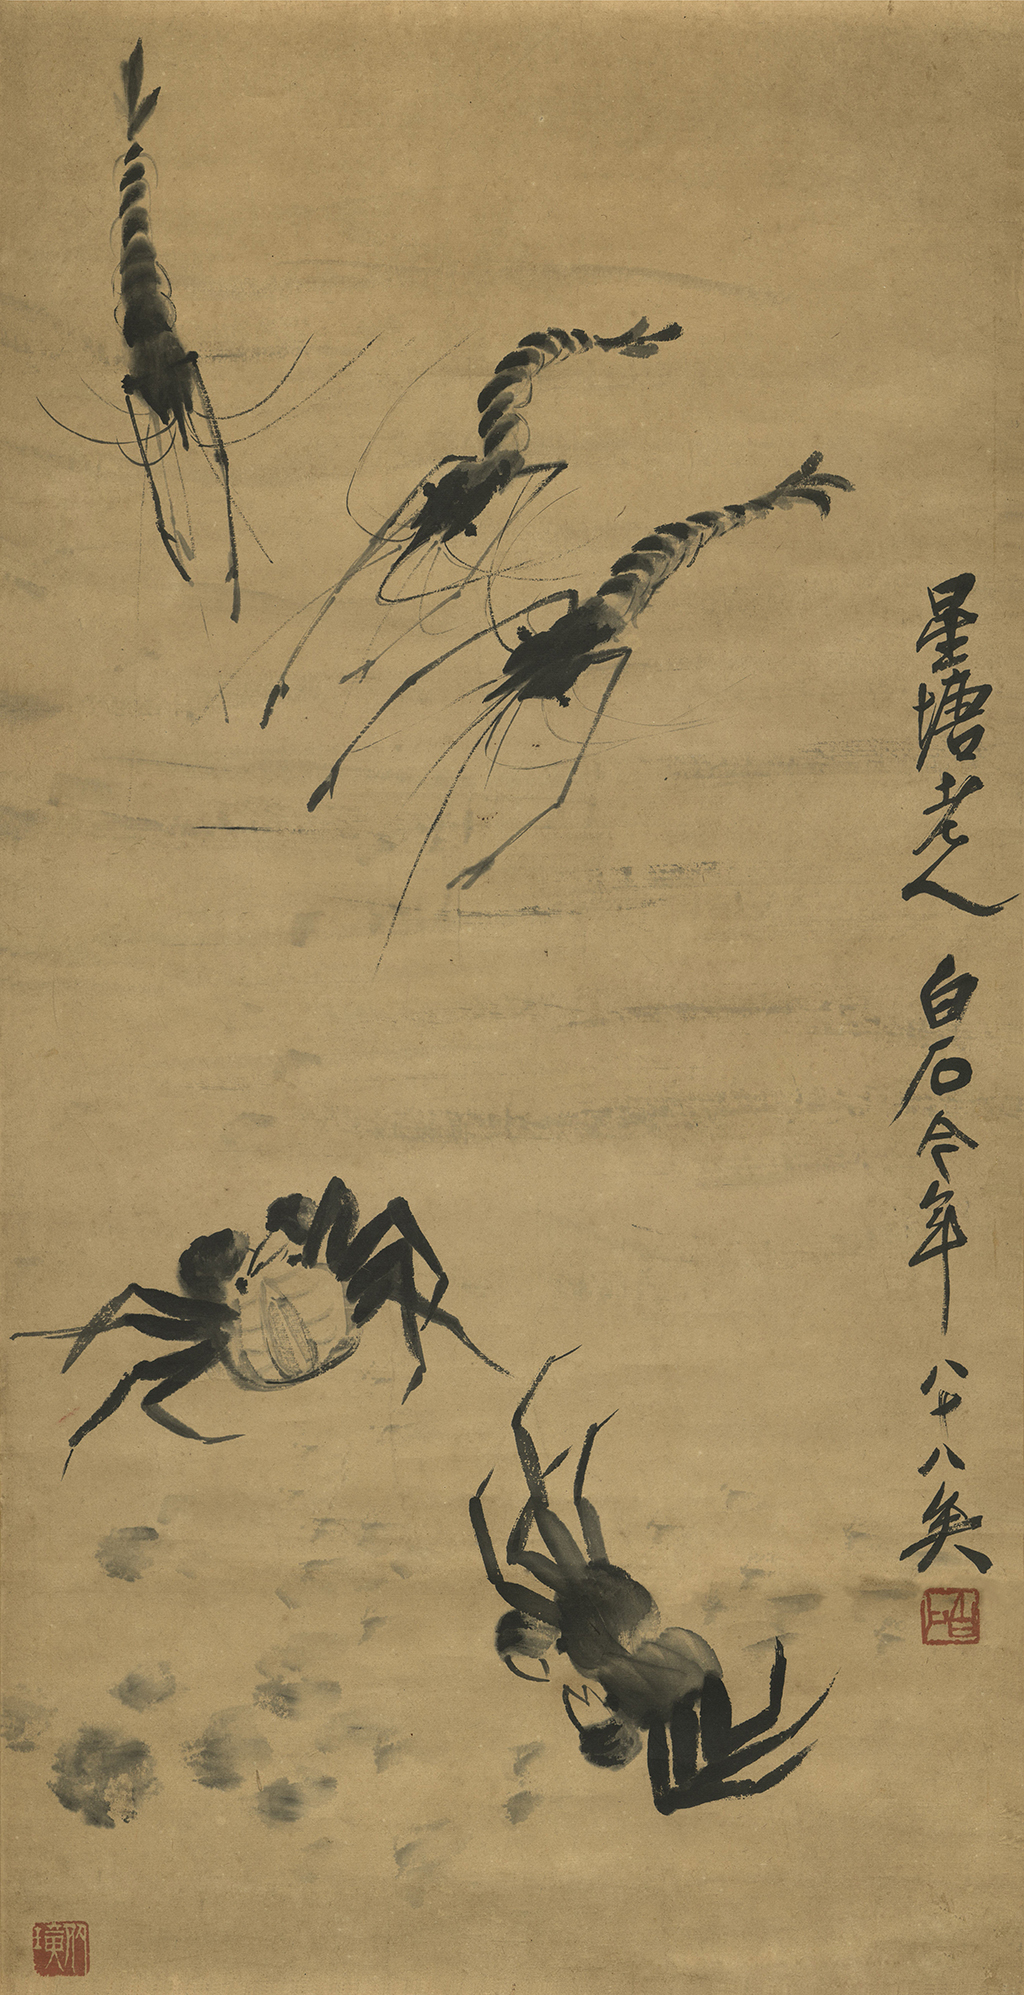 星塘老人 白石今年 八十八矣